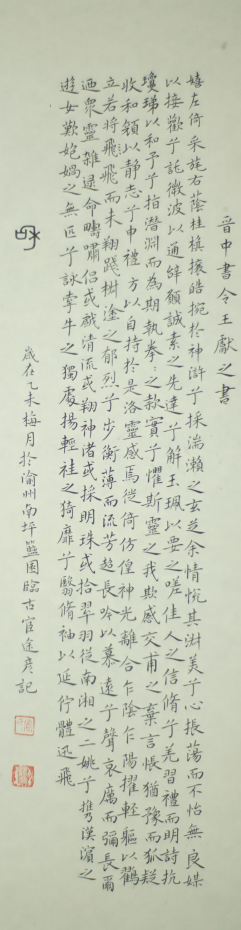 晋中书令王獻之書
嬉左倚采旄右蔭桂旗攘皓捥於神滸兮採湍瀬之玄芝余情悦其淑美兮心振蕩而不怡無良媒
以接歡兮託微波以通辭願誠素之先達兮解玉珮以要之嗟佳人之信脩兮羌習禮而明詩抗
瓊珶以和予兮指潛淵而為期執拳之款實兮懼斯靈之我欺感交甫之棄言悵猶豫而狐疑
收和顏以静志兮申禮方以自持於是洛靈感焉徙倚仿偟神光離合乍陰乍陽擢輕軀以鶴
立若將飛而未翔踐椒塗之郁烈兮步衡薄而流芳超長吟以慕遠兮聲哀厲而彌長爾
迺衆靈雜遝命疇嘯侶或戲清流或翔神渚或採明珠或拾翠羽從南湘之二姚兮携漢濱之
遊女歎匏媧之無匹兮詠牽牛之獨處揚輕袿之猗靡兮翳脩袖以延佇體迅飛
歲在乙未梅月於渝州南坪藍園臨古